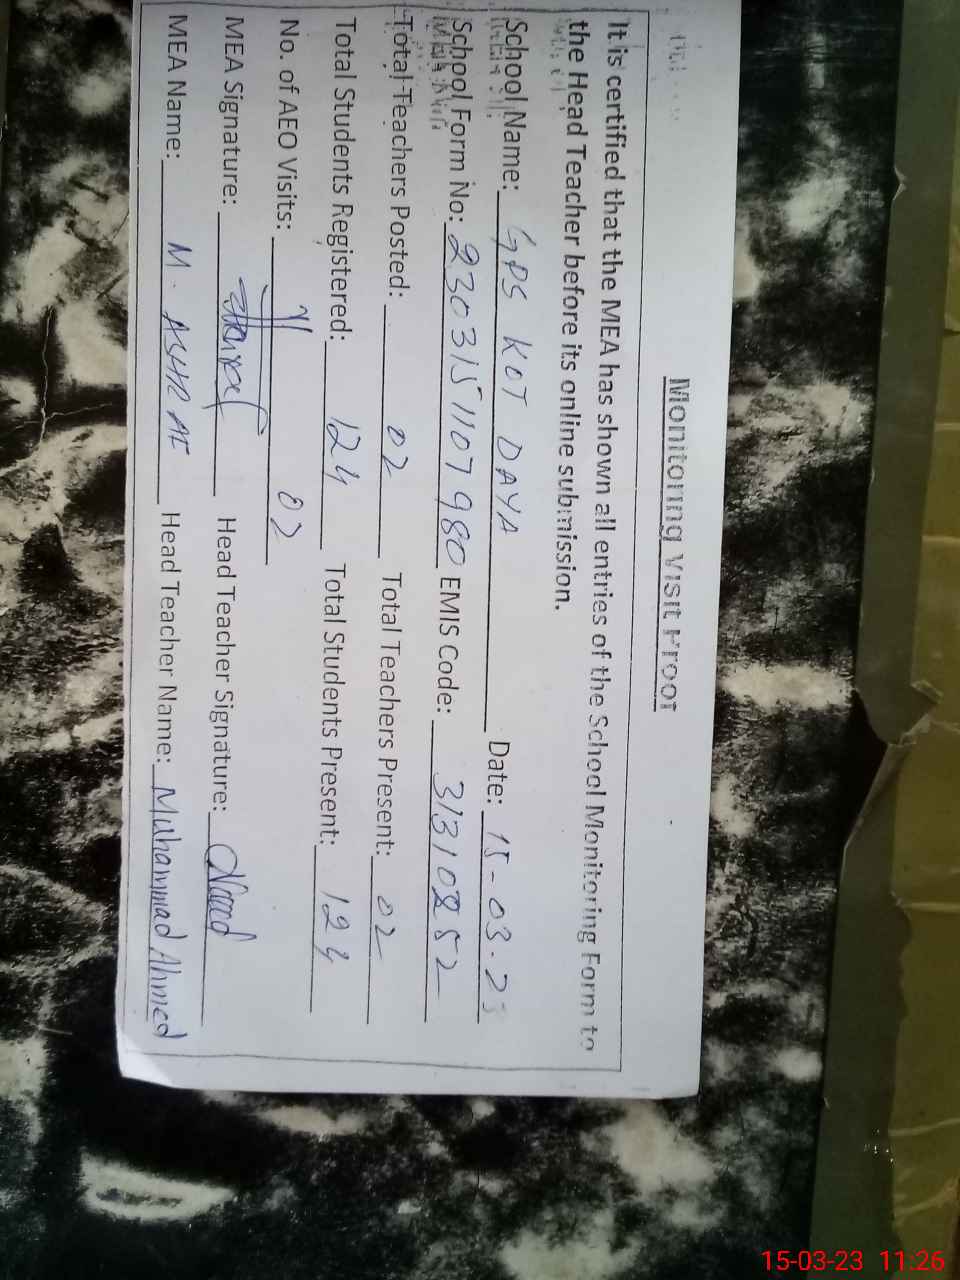 Monitoring Visit Proof
It is certified that the MEA has shown all entries of the School Monitoring Form to
the Head Teacher before its online submission.
School Name: GPS KOT DAYA Date: 15-03-23
School Form No: 2303151107980 EMIS Code: 31310852
Total Teachers Posted: 02 Total Teachers Present: 02
Total Students Registered: 124 Total Students Present: 124
No. of AEO Visits: 02
MEA Signature: Head Teacher Signature:
MEA Name: M. ASHRAF Head Teacher Name: Muhammad Ahmed
15-03-23 11:26